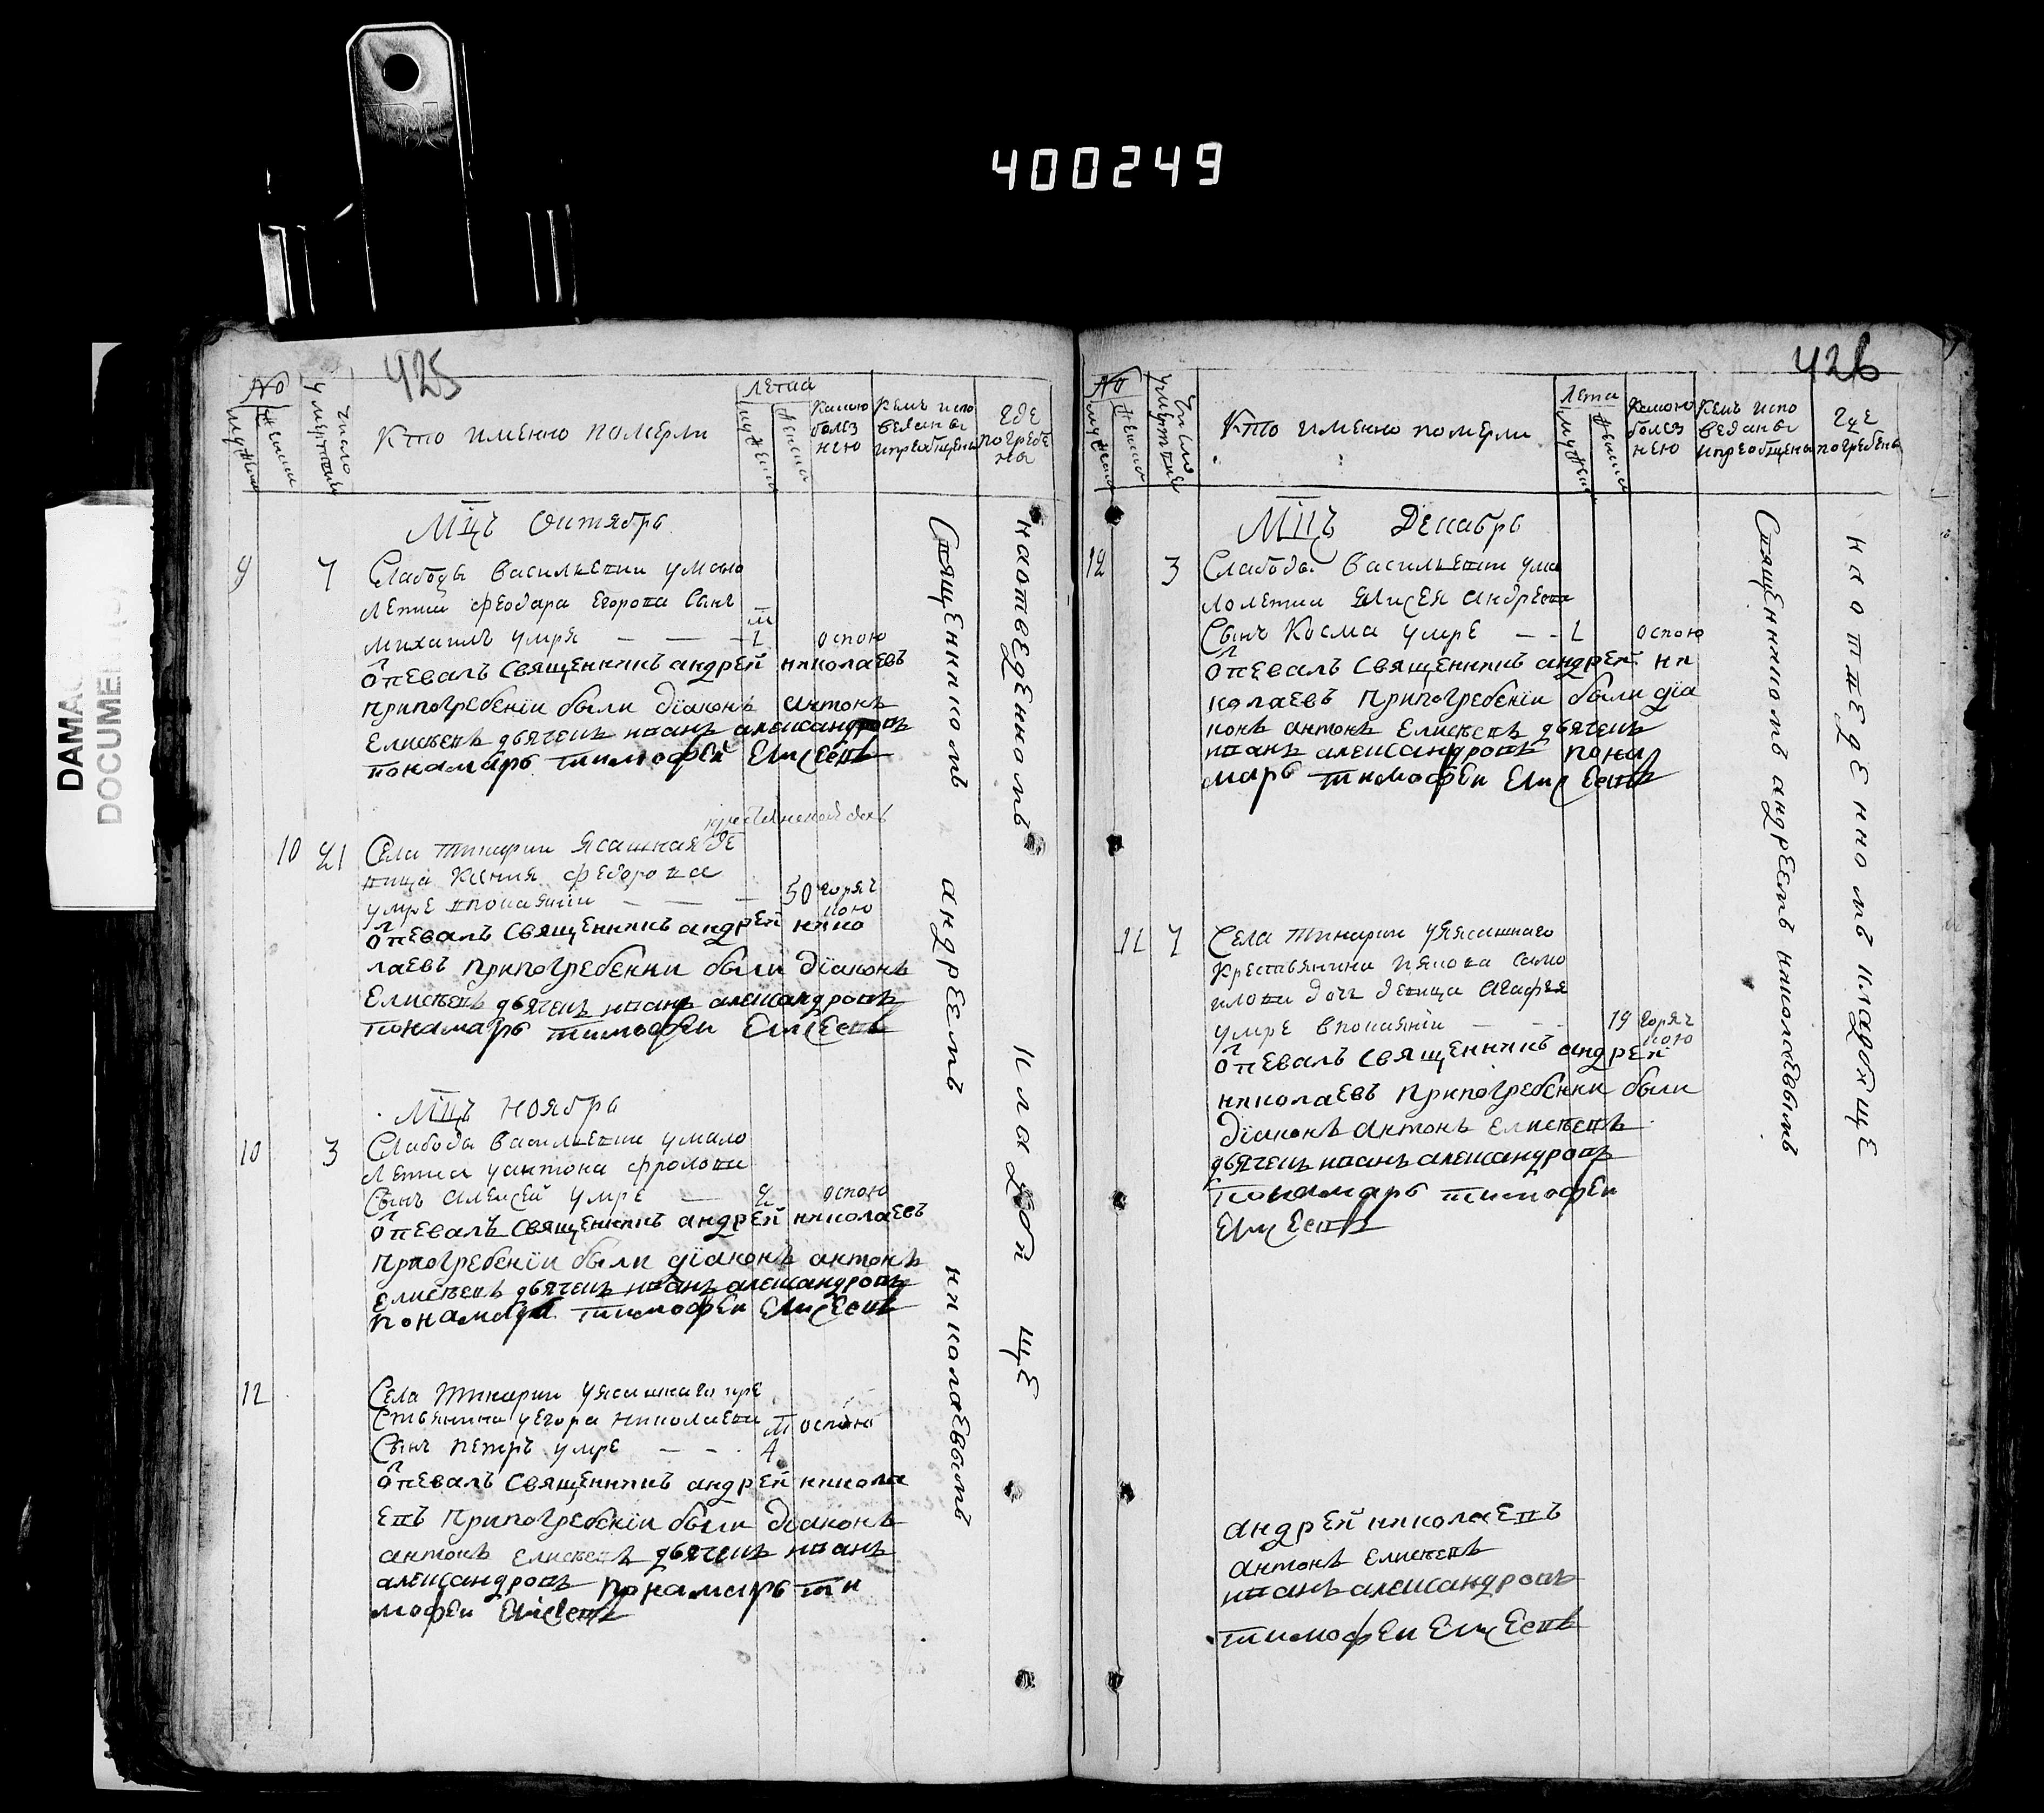 400249
DAMA
DOCUME
425
№
мужеска
женска
число
умертвия
Кто именно померли
лета
мужеска
женска
Какою
болез
нею
Кемъ испо
веданы
иприобщены
где
погребе
ны
Мцъ Октябрь
9 7 Слабоды василевки умало
летна феодара егорова сынъ
михаилъ умря — — — 1 оспою
Отпевалъ священникъ андрей николаевъ
припогребенїи были дїаконъ антонъ
Елисеевъ дьячекъ иванъ александровъ
понамарь тимофей Елисеевъ
10 21 Села Тинарки ясашная де
вица Ксения федорова
умре впокаянїи — — — 50 горяч
кою
Отпевалъ священникъ андрей нико
лаевъ припогребении были дїаконъ
Елисеевъ дьячекъ иванъ александровъ
понамарь тимофеи Елисеевъ
Мцъ Ноябрь
10 3 Слабоды василевки умало
летна уантона фролова
Сынъ алексей умре — 2 оспою
Отпевалъ священникъ андрей николаевъ
припогребенїи были дїаконъ антонъ
Елисеевъ дьячекъ иванъ александровъ
понамарь тимофеи Елисеевъ
12 Села Тинарки уясашнаго кре
стьянина уегора николаева
Сынъ петръ умре — — оспою
Отпевалъ священникъ андрей никола
евъ припогребенїи были дїаконъ
антонъ елисеевъ дьячекъ иванъ
александровъ понамарь ти
мофеи Елисеевъ
Священникомъ андреемъ николаевымъ
наотведенномъ кладбище
426
№
мужеска
женска
Число
умертвия
Кто именно померли
лета
мужеска
женска
Какою
болез
нею
Кемъ испо
веданы
иприобщены
где
погребены
Мцъ Декабрь
12 3 Слабоды василевки ума
лолетна Елисея андреева
Сынъ Косма умре — — 1 оспою
Отпевалъ священникъ андрей ни
колаевъ припогребенїи были дїа
конъ антонъ Елисеевъ дьячекъ
иванъ александровъ пона
марь тимофеи Елисеевъ
11 7 Села Тинарки уясашнаго
крестьянина иякова само
илова дочь девица агафья
умре впокаянїи — — 19 горяч
кою
Отпевалъ священникъ андрей
николаевъ припогребении были
дїаконъ антонъ елисеевъ
дьячекъ иванъ александровъ
понамарь тимофеи
Елисеевъ
андрей николаевъ
антонъ елисеевъ
иванъ александровъ
тимофеи Елисеевъ
Священникомъ андреемъ николаевымъ
наотведенномъ кладбище